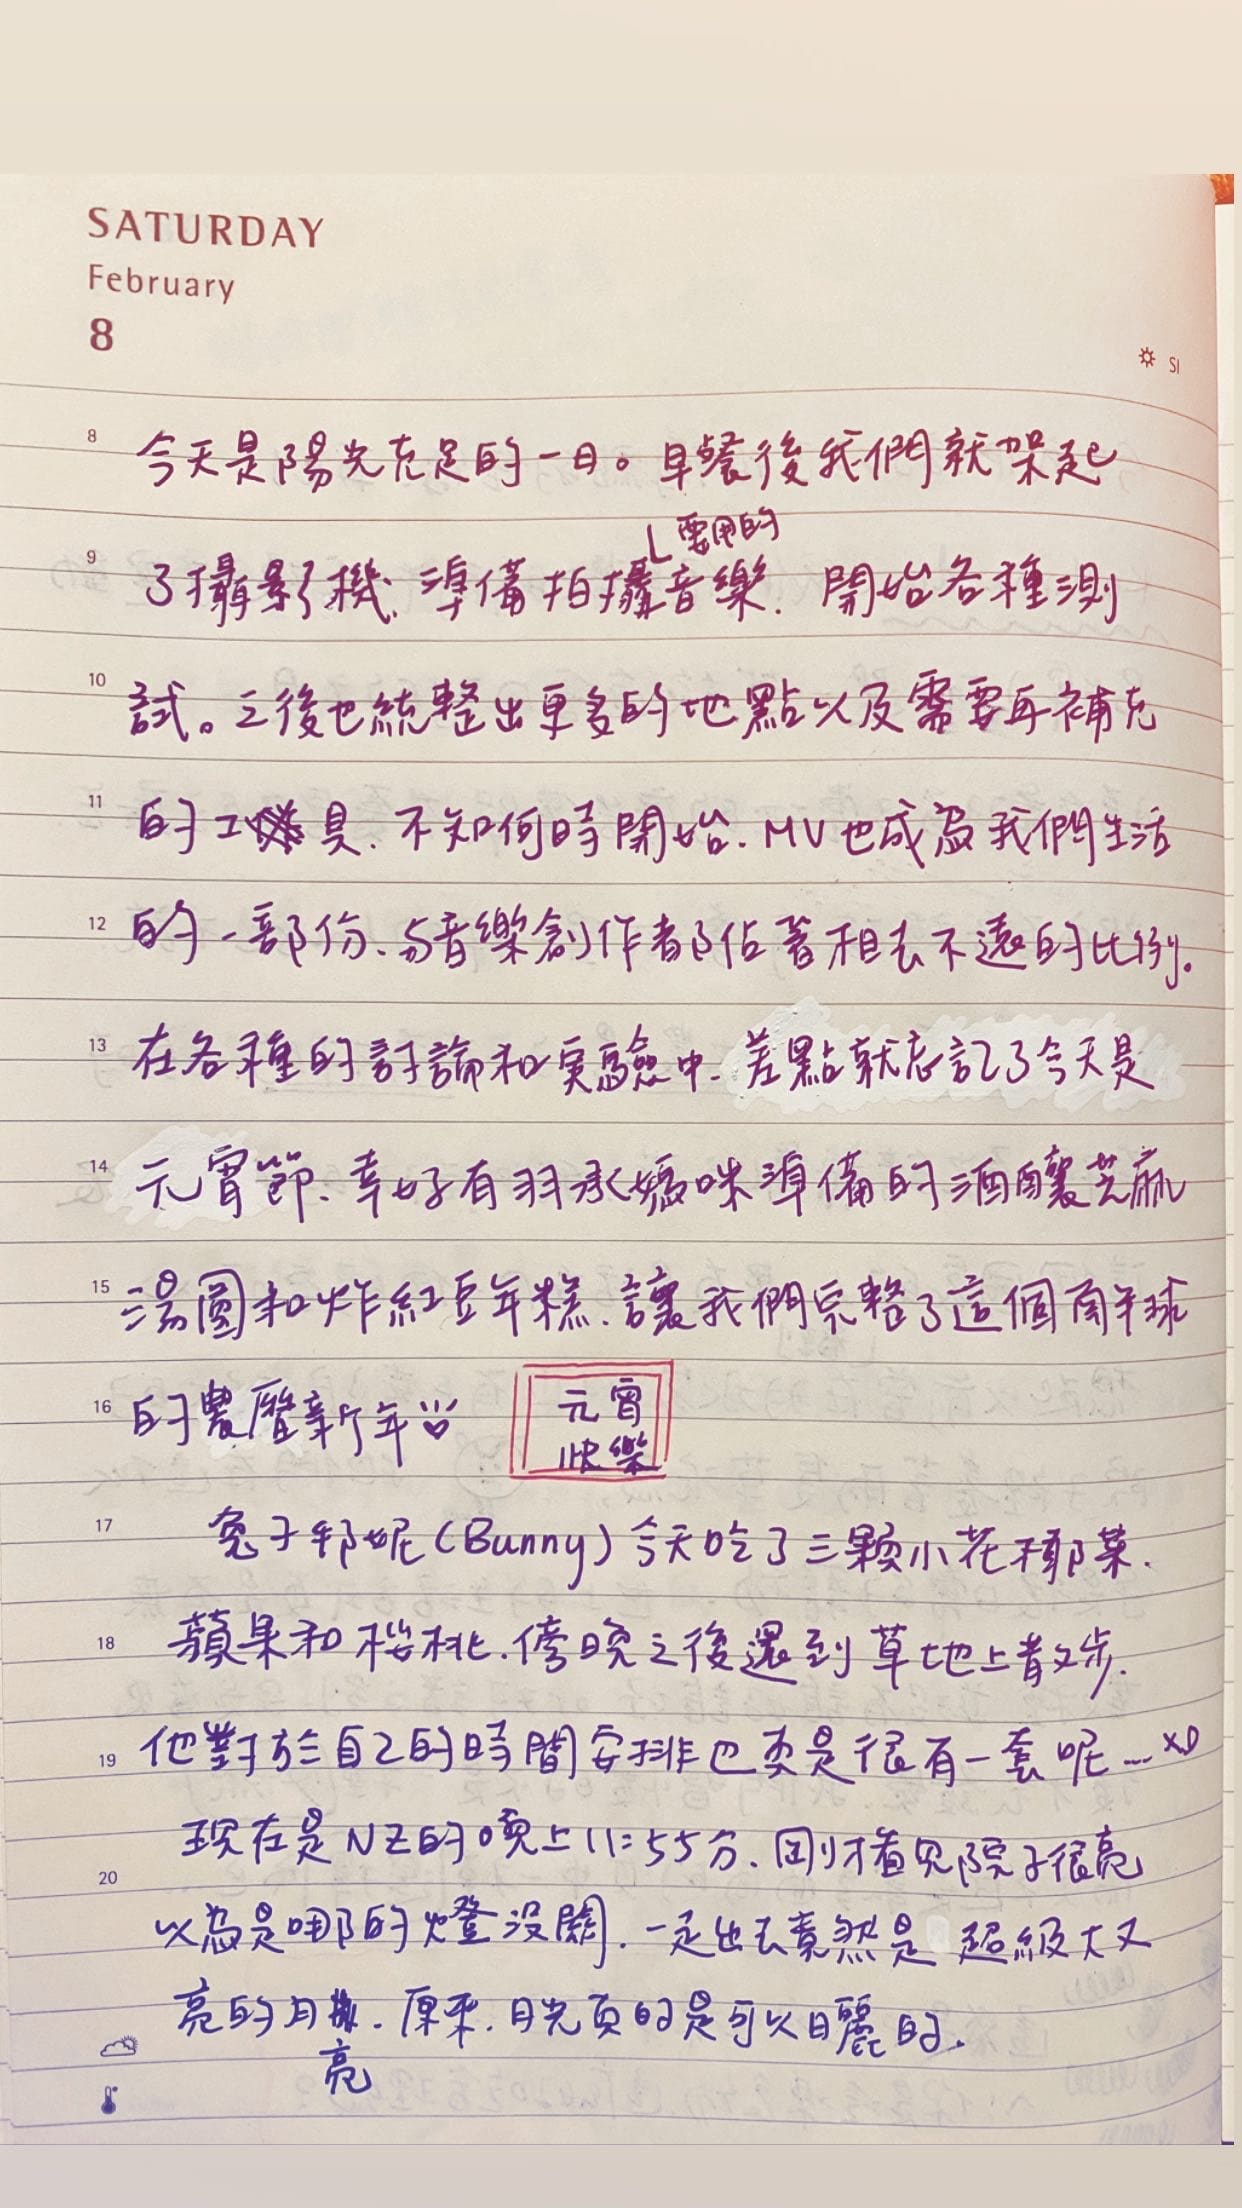 SATURDAY
February
8
SI
8 今天是陽光充足的一日。早餐後我們就架起
要用的
9 了攝影機、準備拍攝音樂、開始各種測
10 試。之後也統整出更多的地點以及需要再補充
11 的工具、不知何時開始、MV也成為我們生活
12 的一部份、与音樂創作者都佔著相去不遠的比例。
13 在各種的討論和實驗中、差點就忘記了今天是
14 元宵節、幸好有羽承媽咪準備的酒釀芝麻
15 湯圓和炸紅豆年糕、讓我們完整了這個南半球
16 的農曆新年
元宵
快樂
17 兔子邦妮(Bunny)今天吃了三顆小花椰菜、
18 蘋果和櫻桃、傍晚之後還到草地上散步、
19 他對於自己的時間安排也真是很有一套呢...XD
現在是NZ的晚上11:55分、剛才看見院子很亮
20
以為是哪的燈沒關、一走出去竟然是超級大又
亮的月、原來、月光真的是可以曬的、
亮